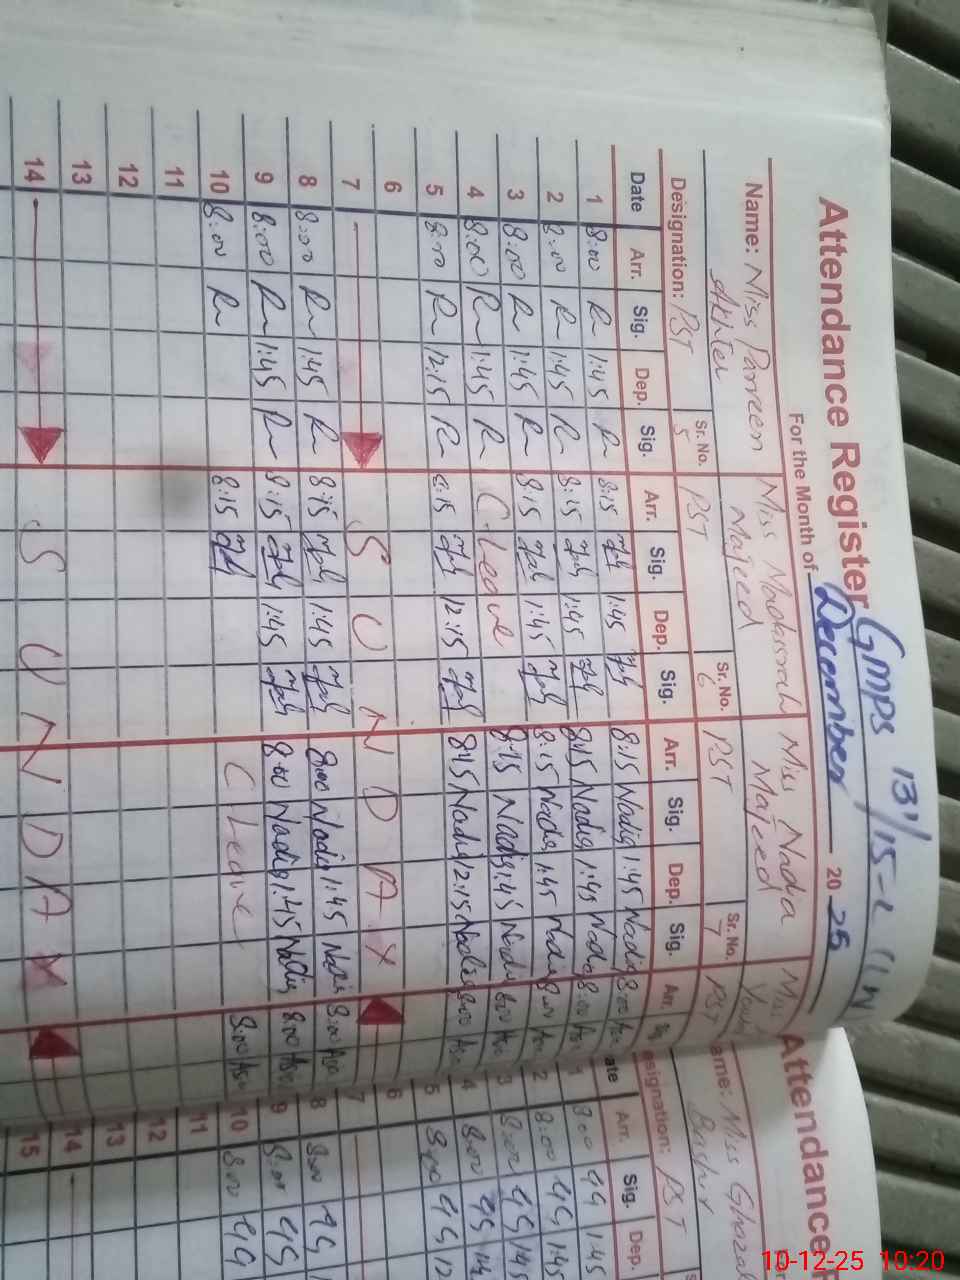 GMPS 13/15-L (1 N)
Attendance Register
For the Month of December 2025
Name: Miss Parveen Akhter
Miss Nadia Majeed
Designation: PST Sr. No. 5
PST Sr. No. 6
PST Sr. No. 7
PST
Date Arr. Sig. Dep. Sig. Arr. Sig. Dep. Sig. Arr. Sig. Dep. Sig. Arr.
1 8:00 1:45 8:15 1:45 8:15 Nadia 1:45 Nadia 8:00
2 8:00 1:45 8:15 1:45 8:15 Nadia 1:45 Nadia 8:00
3 8:00 1:45 8:15 1:45 8:15 Nadia 1:45 Nadia 8:00
4 8:00 1:45 C-Leave 8:15 Nadia 1:45 Nadia 8:00
5 8:00 12:15 8:15 12:15 8:15 Nadia 12:15 Nadia 8:00
6
7 SUNDAY
8 8:00 1:45 8:15 1:45 8:00 Nadia 1:45 Nadia 8:00
9 8:00 1:45 8:15 1:45 8:00 Nadia 1:45 Nadia 8:00
10 8:00 8:15 C Leave 8:00
11
12
13
14 SUNDAY
Attendance
ame: Miss Ghazal
Bashir
esignation: PST
ate Arr. Sig. Dep.
1 8:00 1:45
2 8:00 1:45
3 8:00 1:45
4 8:00
5 8:00 12
6
7
8 8:00
9 8:00
10 8:00
11
12
13
14
15
10-12-25 10:20